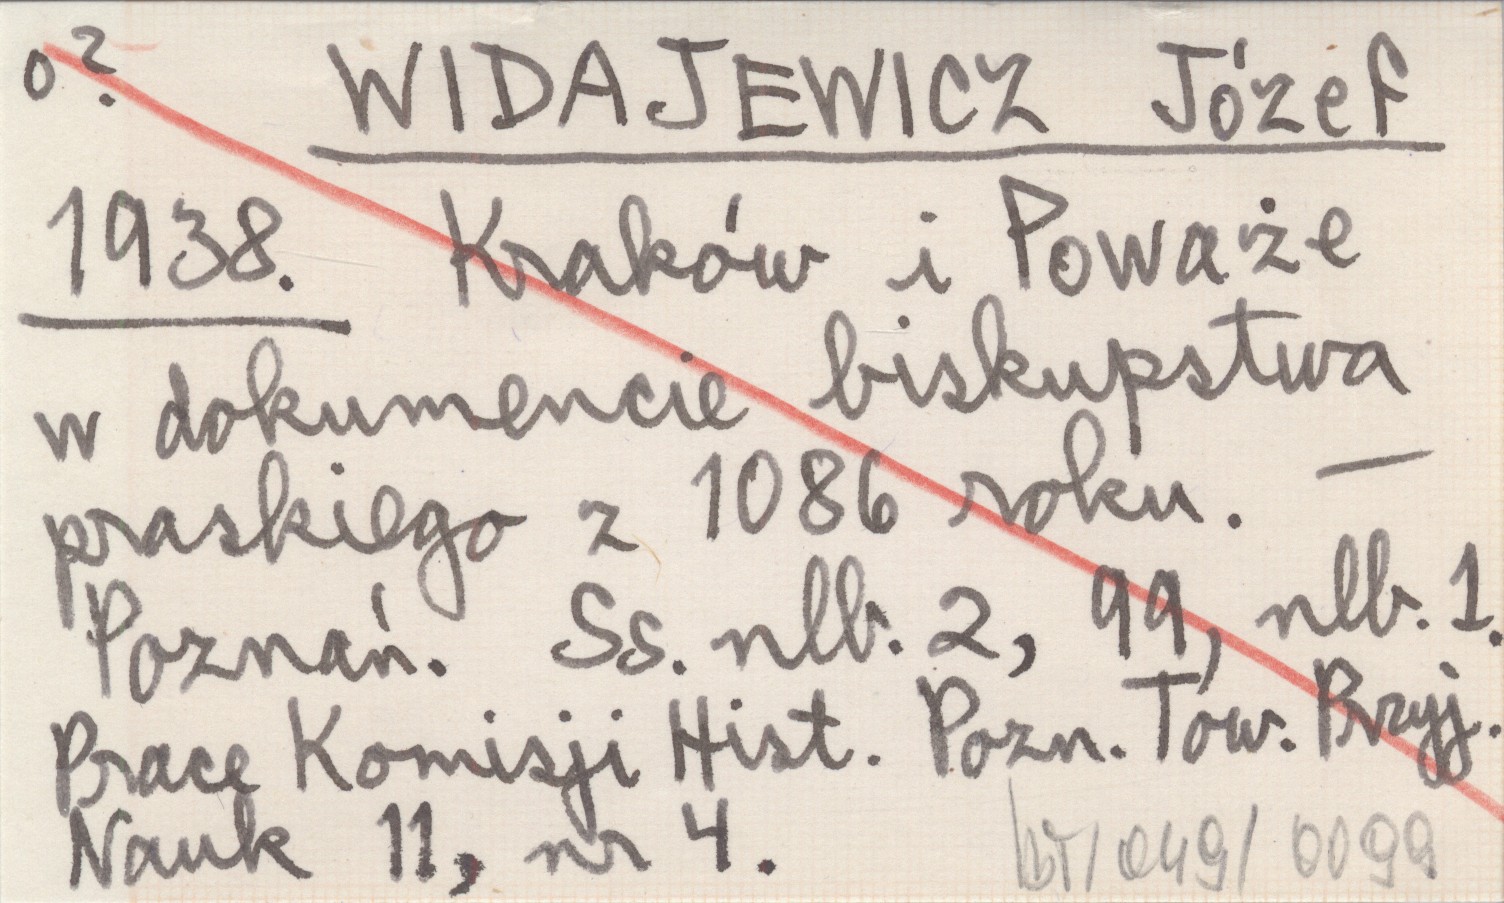 o ?
WIDAJEWICZ Józef
1938. Kraków i Poważe
w dokumencie biskupstwa
praskiego z 1086 roku. —
Poznań. Ss. nlb. 2, 99, nlb. 1.
Prace Komisji Hist. Pozn. Tow. Przyj.
Nauk 11, nr 4.
/049/ 0099